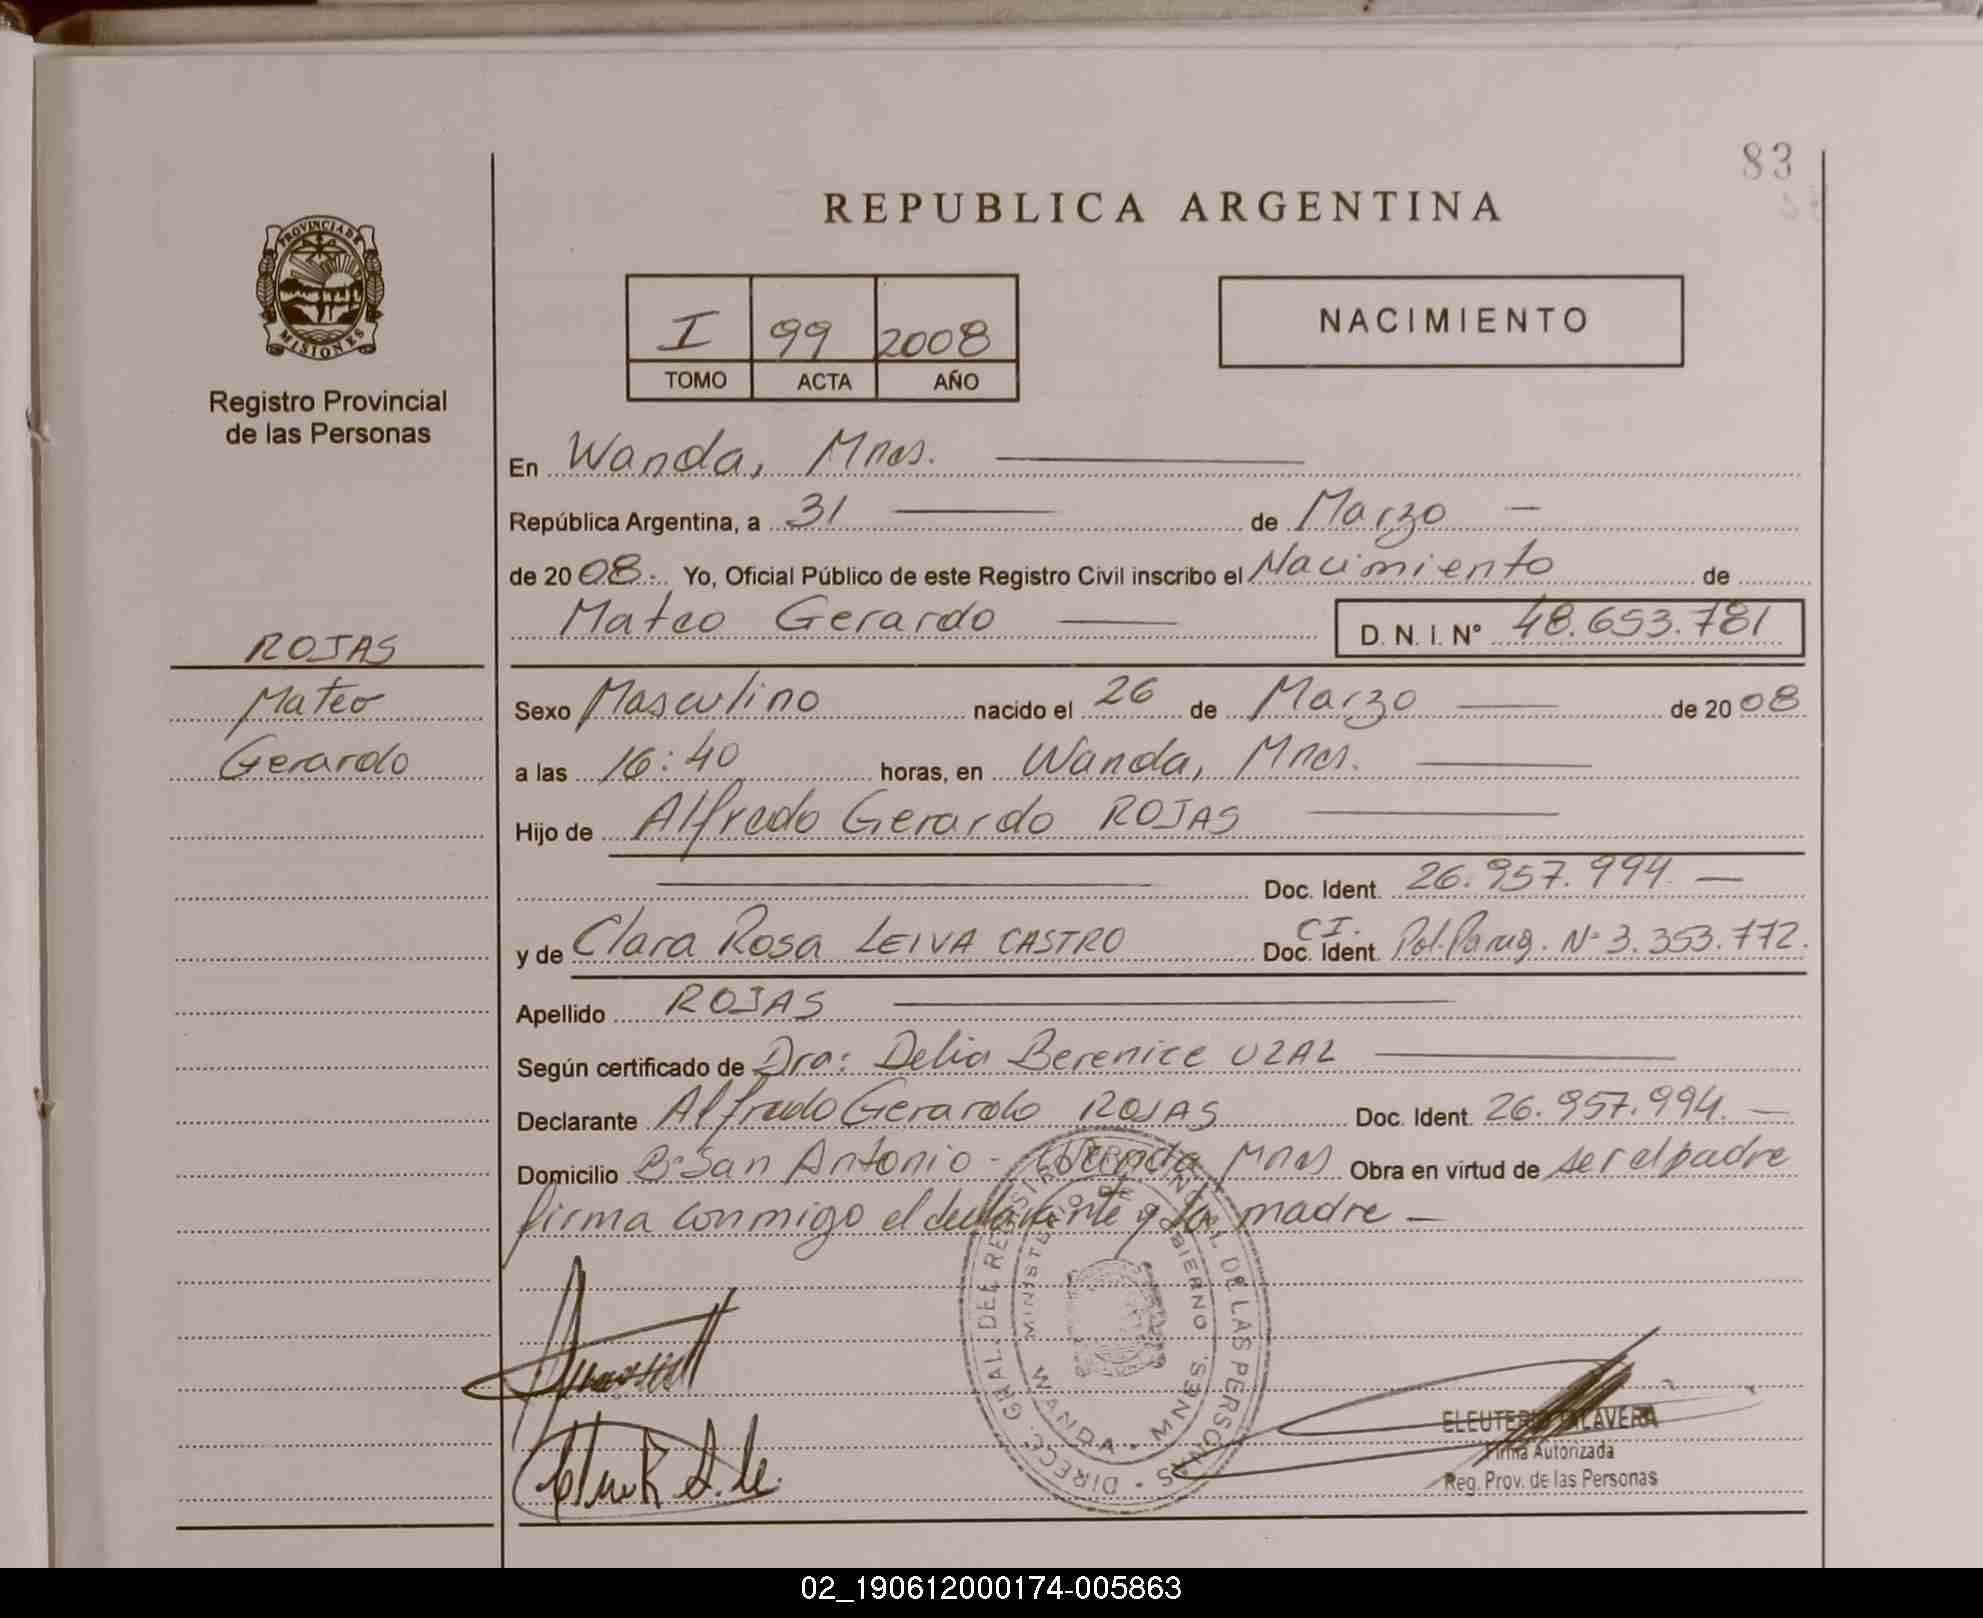 83
REPUBLICA ARGENTINA
PROVINCIA DE
MISIONES
Registro Provincial
de las Personas
I 99 2008
TOMO ACTA AÑO
NACIMIENTO
En Wanda, Mnes.
República Argentina, a 31 de Marzo
de 2008. Yo, Oficial Público de este Registro Civil inscribo el Nacimiento de
Mateo Gerardo D. N. I. N° 48.653.781
ROJAS
Mateo
Gerardo
Sexo Masculino nacido el 26 de Marzo de 2008
a las 16:40 horas, en Wanda, Mnes.
Hijo de Alfredo Gerardo ROJAS
Doc. Ident. 26.957.994
y de Clara Rosa LEIVA CASTRO C.I. Doc. Ident. Pol. Parag. N° 3.353.772.
Apellido ROJAS
Según certificado de Dra: Delia Berenice UZAL
Declarante Alfredo Gerardo ROJAS Doc. Ident. 26.957.994.
Domicilio B° San Antonio - Wanda Mnes Obra en virtud de ser el padre
firma conmigo el declarante y la madre
DIREC. GRAL. DEL REGISTRO PROVINCIAL DE LAS PERSONAS
MINISTERIO DE GOBIERNO
WANDA - MNES.
ELEUTERIO TALAVERA
Firma Autorizada
Reg. Prov. de las Personas
02_190612000174-005863